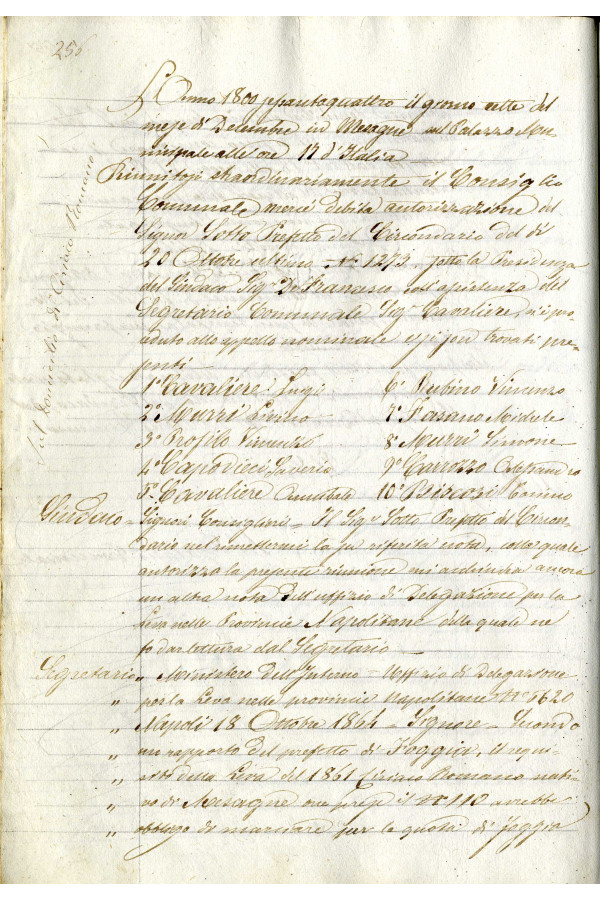 256
L'Anno 1800 sessantaquattro il giorno sette del
mese di Decembre in Mesagne sul Palazzo Mu-
nicipale alle ore 17 d'Italia
Riunitosi straordinariamente il Consiglio
Comunale mercé debita autorizzazione del
Signor Sotto Prefetto del Circondario del dì
20 Ottobre ultimo N° 1272, sotto la Presidenza
del Sindaco Sigr De Francesco coll'assistenza del
Segretario Comunale Sigr Cavaliere, si è pro-
ceduto allo appello nominale e si son trovati pre-
senti
1° Cavaliere Luigi 6° Rubino Vincenzo
2° Murri 7° Fasano Michele
3° Profilo Vincenzo 8° Murri Simone
4° Capodieci Saverio 9° Carrozzo Alessandro
5° Cavaliere Annibale 10°
Sindaco = Signori Consiglieri = Il Sigr Sotto Prefetto del Circon-
dario nel rimettermi la su riferita nota, colla quale
autorizza la presente riunione mi ancora
un altra nota dell'uffizio di Delegazione per la
Leva nelle Provincie Napolitane della quale ne
fo dar lettura dal Segretario
Segretario " Ministero dell'Interno = Uffizio di Delegazione
" per la Leva nelle provincie Napolitane N° 5620
" Napoli 18 Ottobre 1864 = Signore = Secondo
" un rapporto del prefetto di Foggia, il requi-
" sito della Leva del 1861 Ciriaco Romano nati-
" vo di Mesagne ove prese il N° 110 avrebbe
" obbligo di marciare per la quota di Foggia
Sul domicilio di Ciriaco Romano